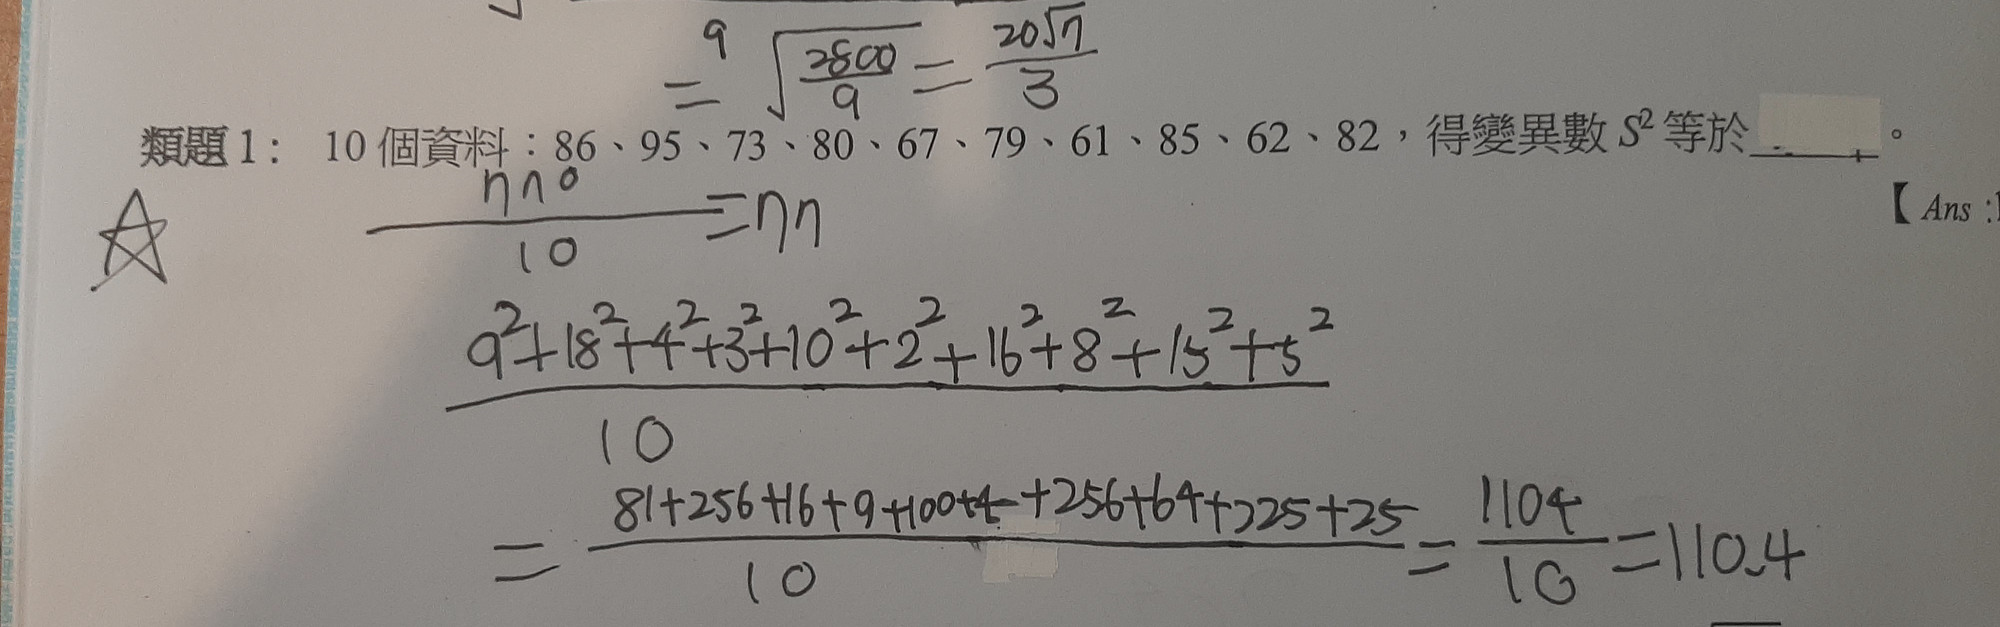 = 9 √2800/9 = 20√7/3
類題1： 10個資料：86、95、73、80、67、79、61、85、62、82，得變異數 S² 等於____。
770/10 = 77
【Ans :
9²+18²+4²+3²+10²+2²+16²+8²+15²+5²/10
= 81+256+16+9+100+4+256+64+225+25/10 = 1104/10 = 110.4